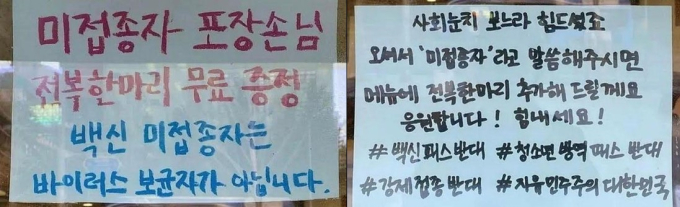 미접종자 포장손님
전복한마리 무료 증정
백신 미접종자는
바이러스 보균자가 아닙니다.
사회눈치 보느라 힘드셨죠
오셔서 '미접종자'라고 말씀해주시면
메뉴에 전복한마리 추가해 드릴께요
응원합니다! 힘내세요!
#백신패스반대 #청소년 방역패스 반대
#강제접종반대 #자유민주주의 대한민국